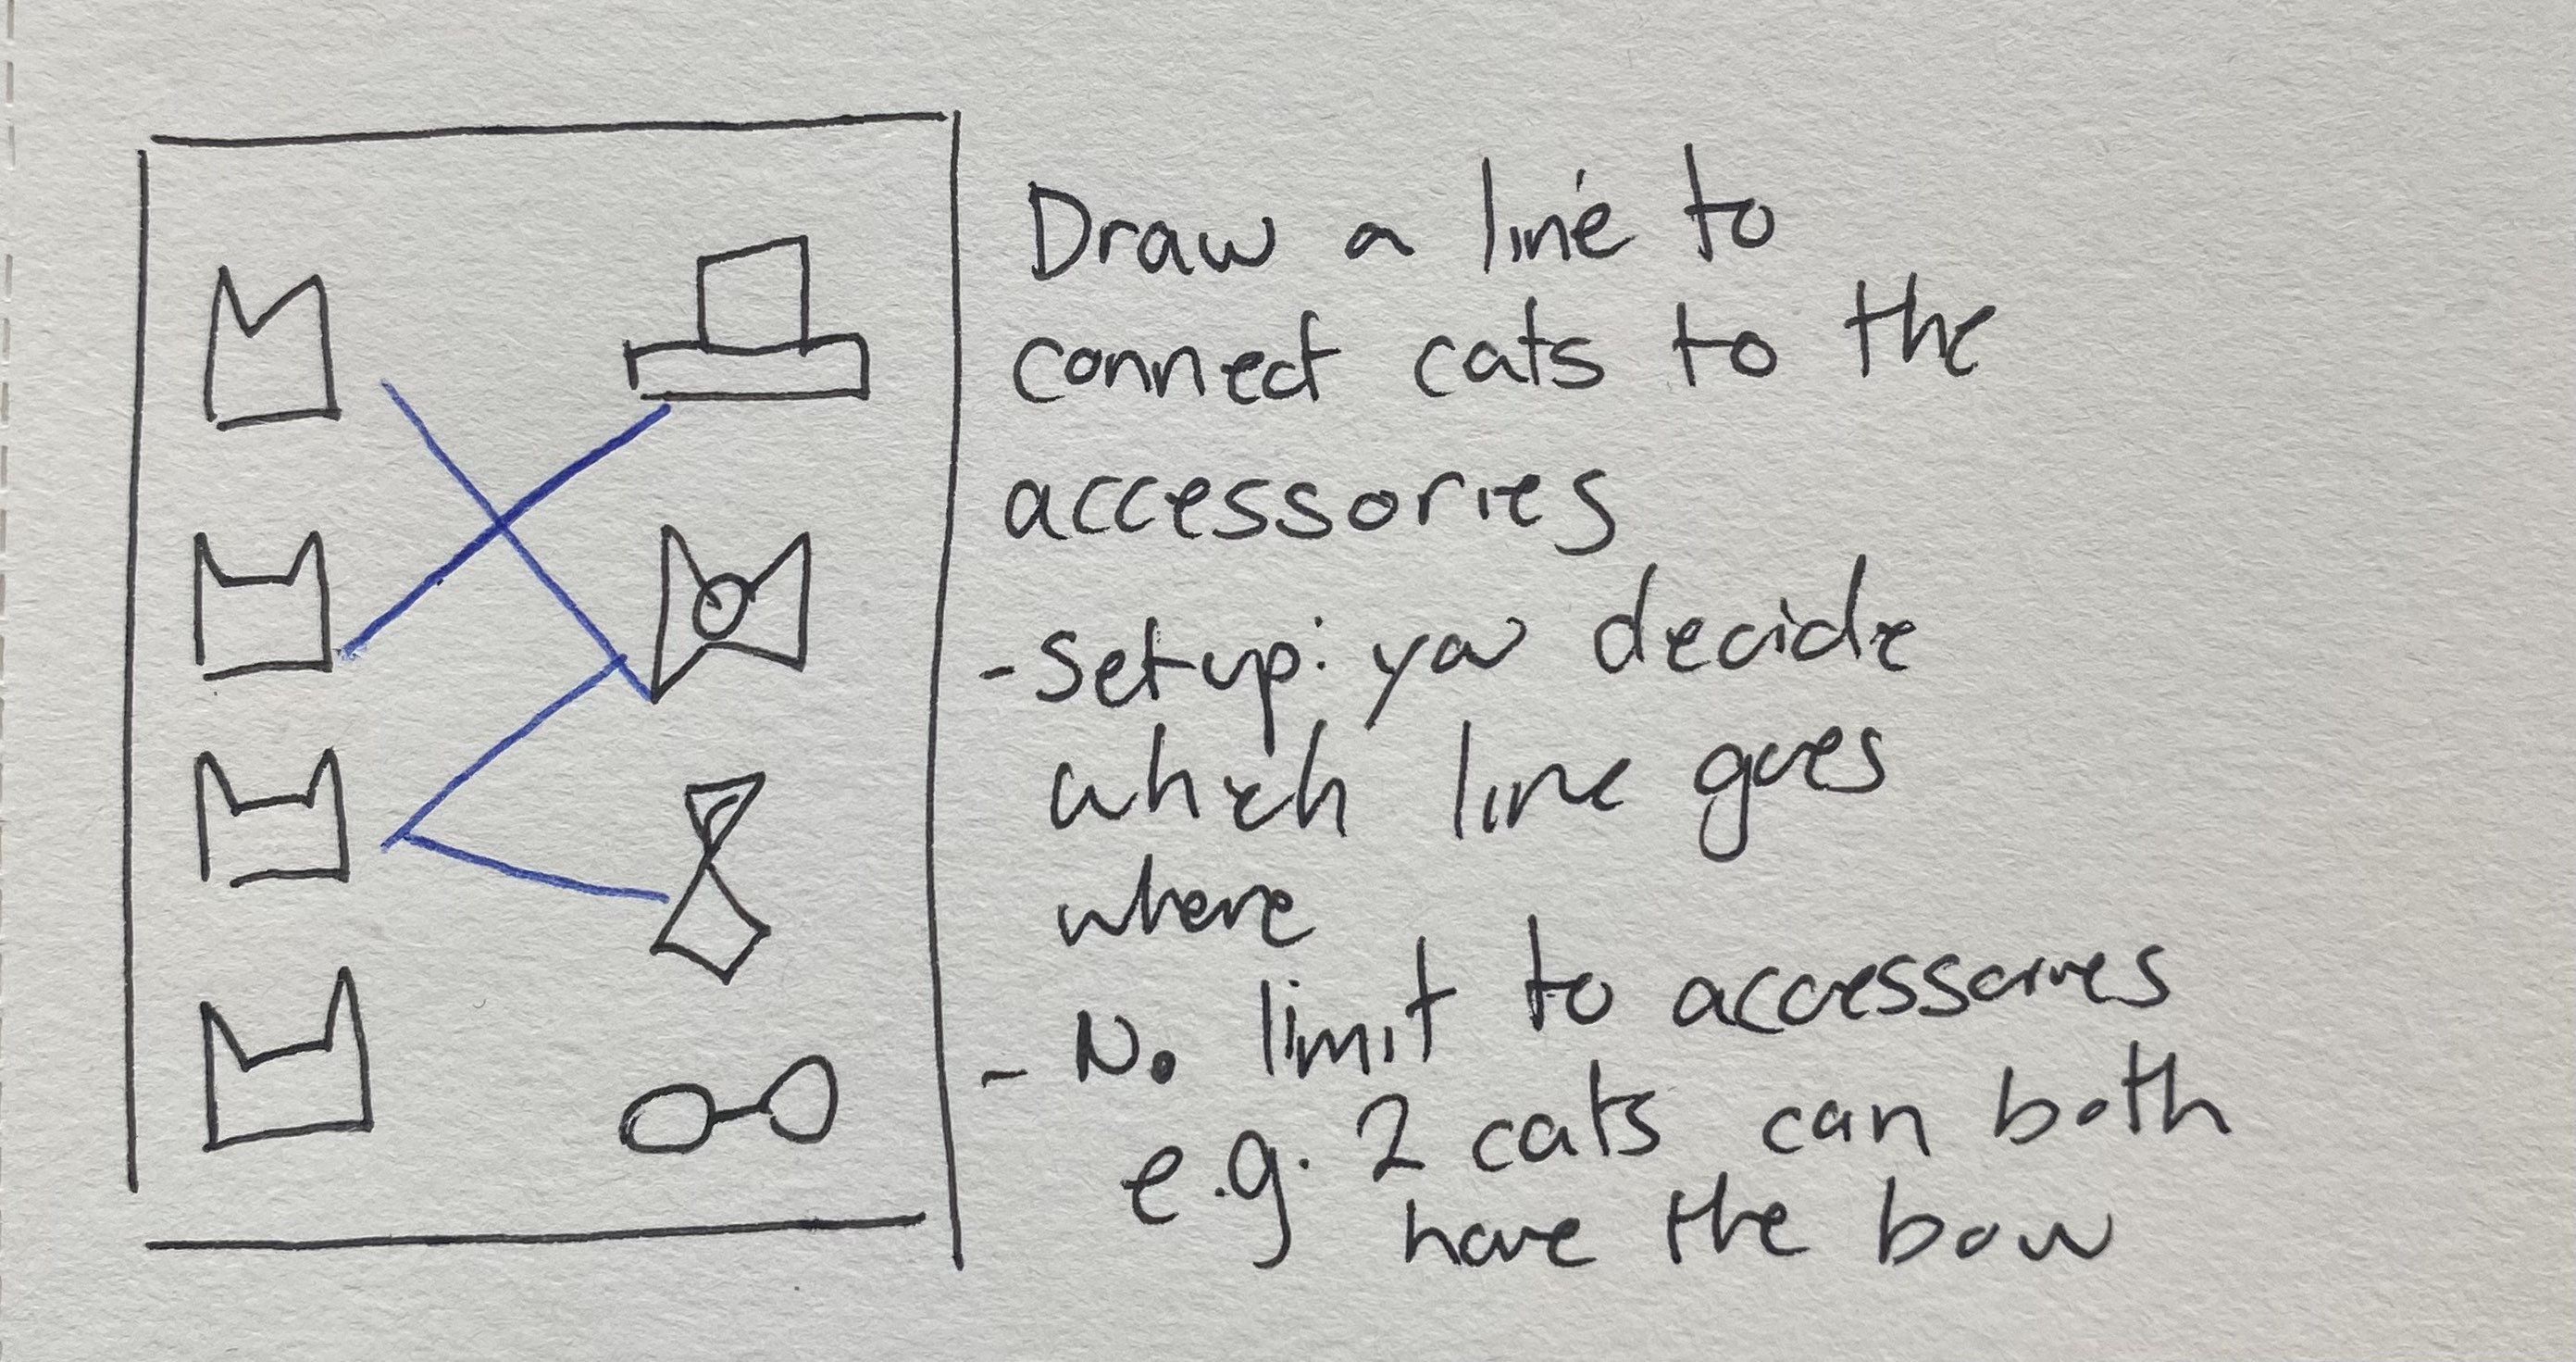 Draw a line to
connect cats to the
accessories
- Setup: you decide
which line goes
where
- No limit to accessories
e.g. 2 cats can both
have the bow